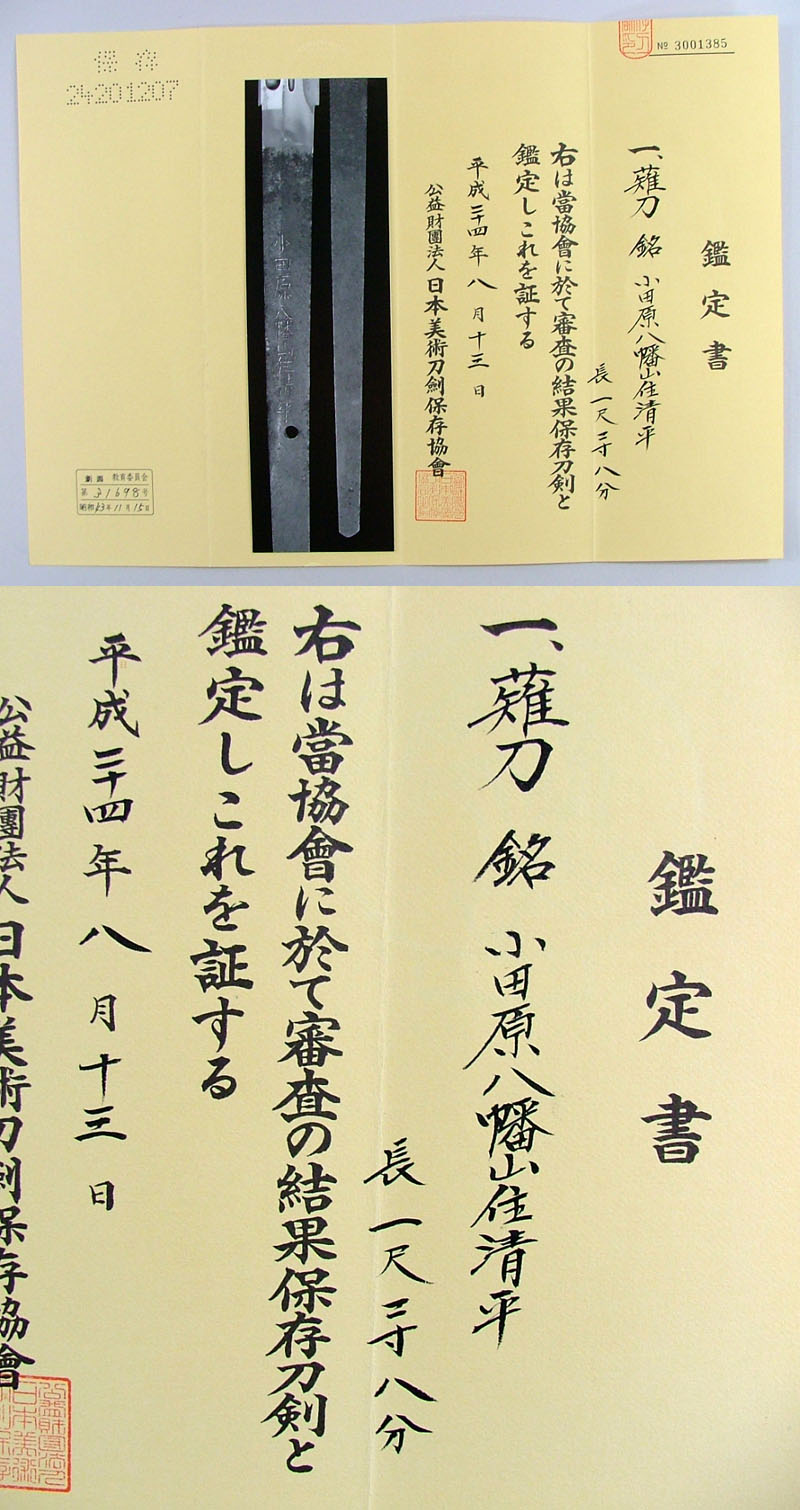 № 3001385
鑑定書
一、薙刀 銘 小田原八幡山住清平
長 一尺三寸八分
右は當協會に於て審査の結果保存刀剣と
鑑定しこれを証する
平成二十四年 八 月 十三 日
公益財團法人 日本美術刀劍保存協會
小田原八幡山住清平
保存
24201207
教育委員会
第 31698号
昭和43年11月15日
鑑定書
一、薙刀 銘 小田原八幡山住清平
長 一尺三寸八分
右は當協會に於て審査の結果保存刀剣と
鑑定しこれを証する
平成二十四年 八 月 十三 日
公益財團法人 日本美術刀劍保存協會